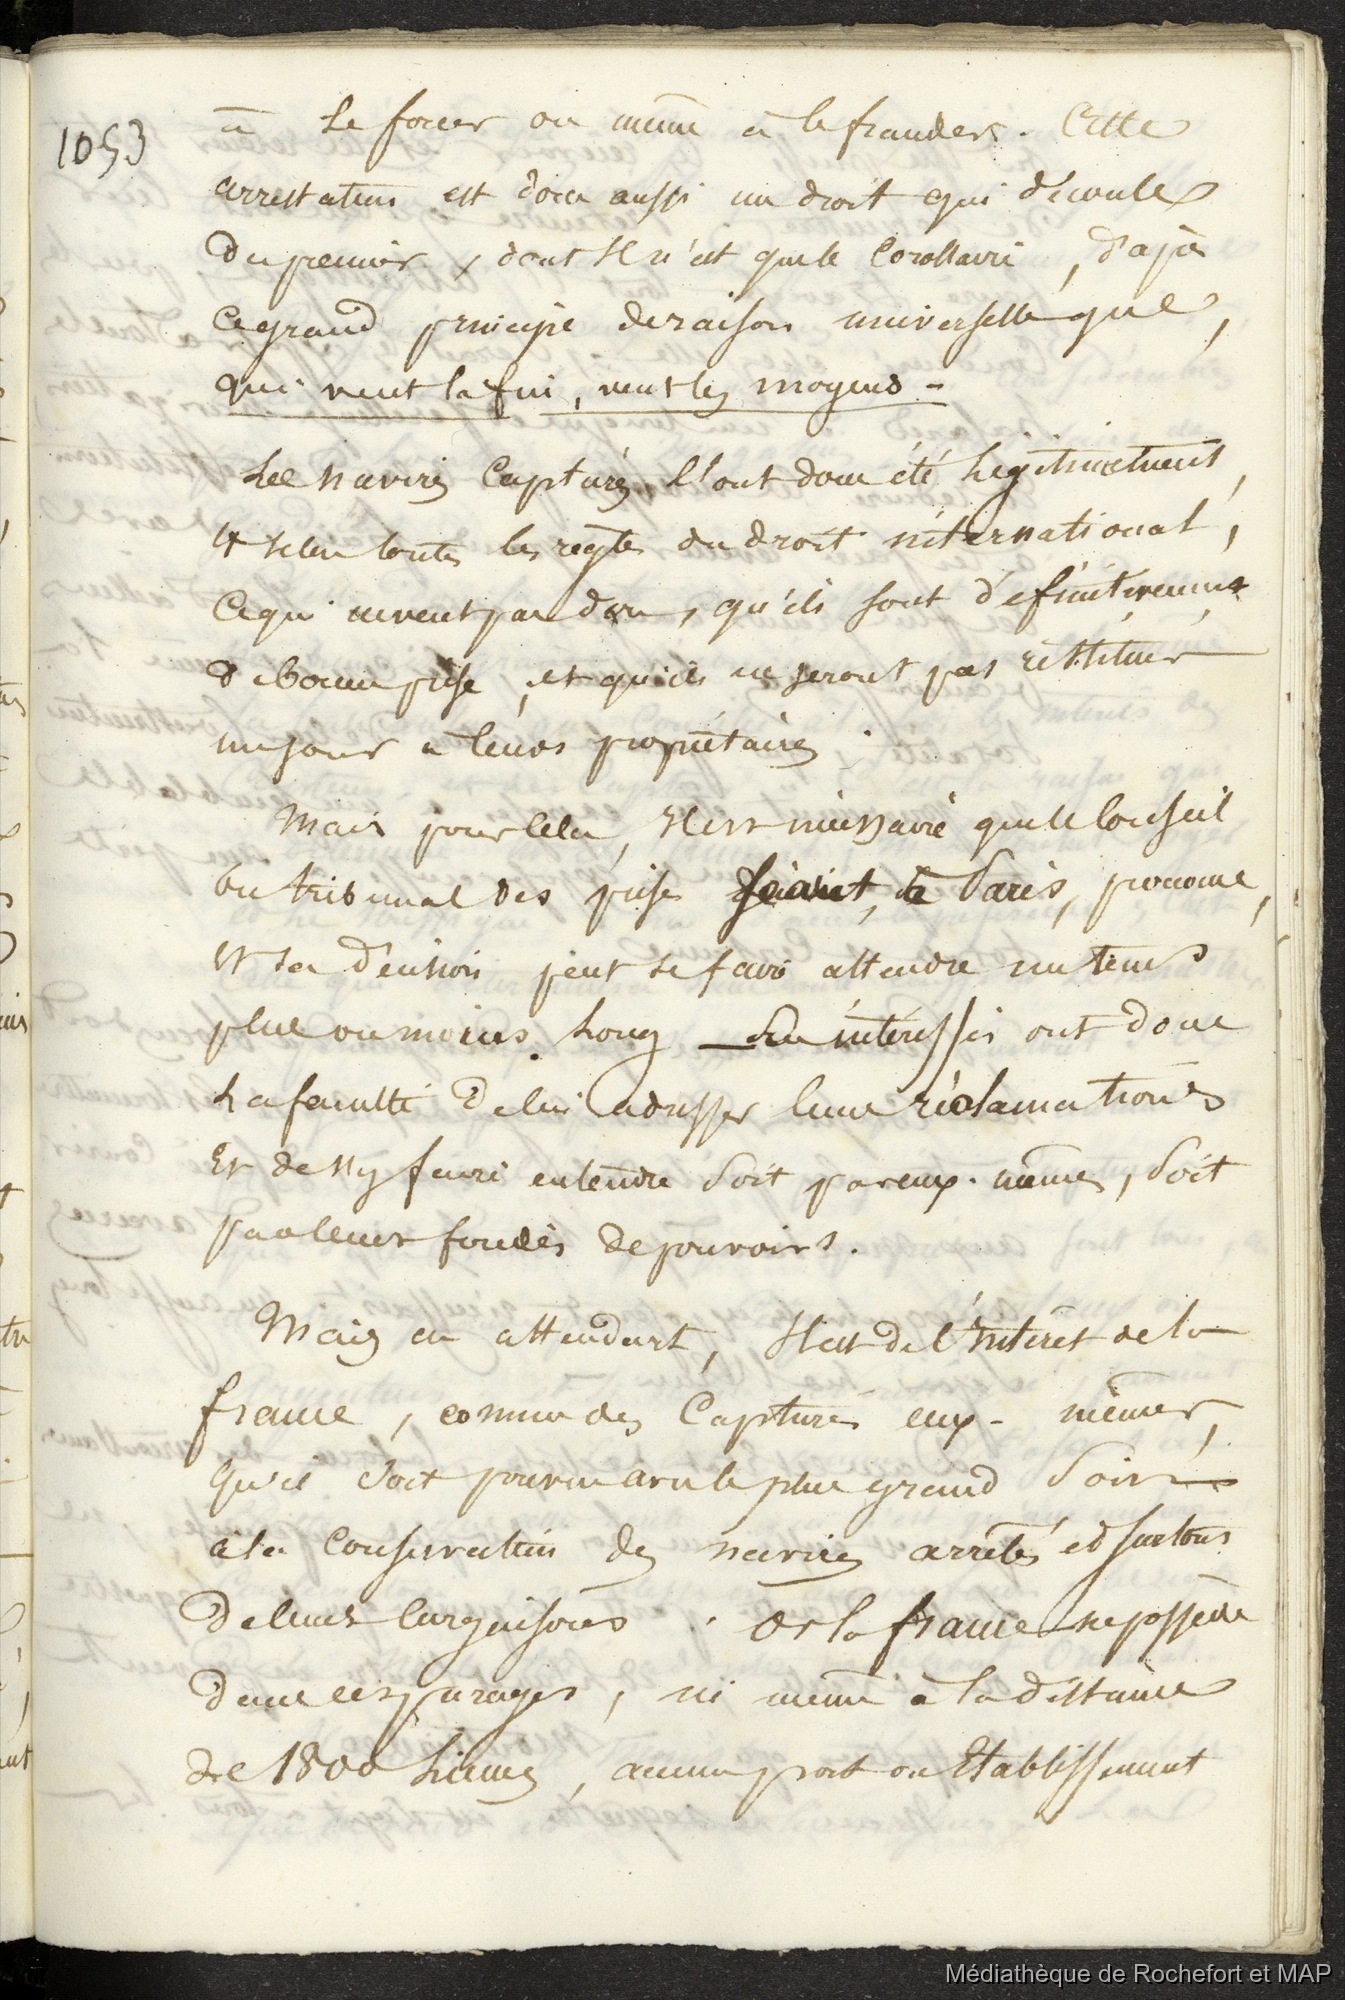 1053
à le forcer ou même à le frauder. Cette
arrestation est donc aussi un droit qui découle
du premier, dont il n'est que le Corollaire, d'après
ce grand principe de raison universelle que,
qui veut la fin, veut les moyens -
Les navires Capturés, l'ont donc été légitimement,
et selon toutes les règles du droit international,
Ce qui revient à dire, qu'ils sont définitivement
de bonne prise, et qu'ils ne seront pas restitués
un jour à leurs propriétaires.
Mais pour cela, il est nécessaire que le Conseil
ou tribunal des prises séant, à Paris, prononce,
et sa décision peut se faire attendre un tems
plus ou moins long _ Les intéressés ont donc
la faculté de lui adresser leurs réclamations
Et de s'y faire entendre soit par eux-mêmes, soit
par leurs fondés de pouvoirs.
Mais en attendant, il est de l'intérêt de la
france, comme des Capturés eux-mêmes,
qu'il soit pourvu avec le plus grand soin
à la Conservation des navires arrêtés et surtout
de leurs Cargaisons. Or la france ne possède
dans ces parages, ni même à la distance
de 1800 lieues, aucun port ou Etablissement
Médiathèque de Rochefort et MAP